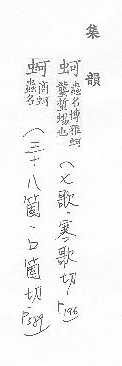 集韻
蚵 蟲名博雅蚵
蠪蜥蜴也 (七歌·寒歌切) P196
蚵 商蚵
蟲名 (三十八箇·口箇切) P589